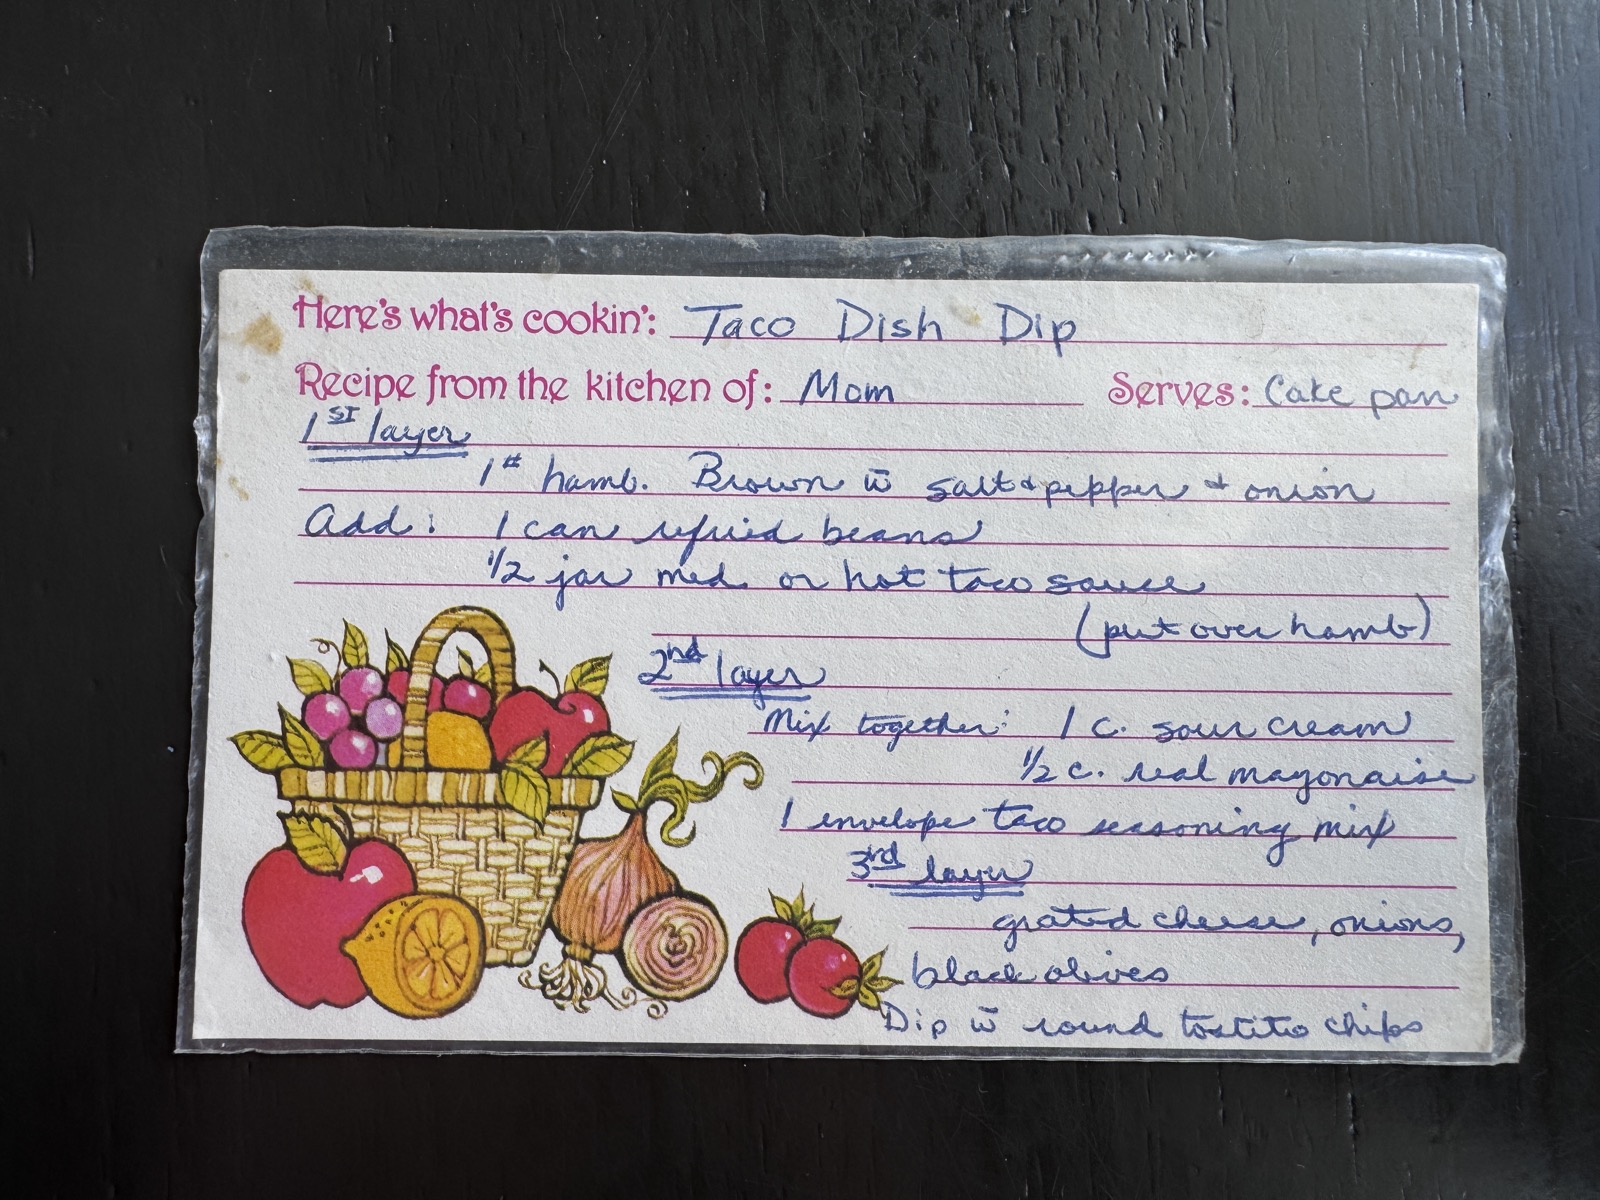 Here's what's cookin': Taco Dish Dip
Recipe from the kitchen of: Mom Serves: Cake pan
1st layer
1# hamb. Brown w̄ salt & pepper & onion
Add: 1 can refried beans
1/2 jar med or hot taco sauce
(put over hamb)
2nd layer
Mix together: 1 c. sour cream
1/2 c. real mayonaise
1 envelope taco seasoning mix
3rd layer
grated cheese, onions,
black olives
Dip w̄ round tostito chips